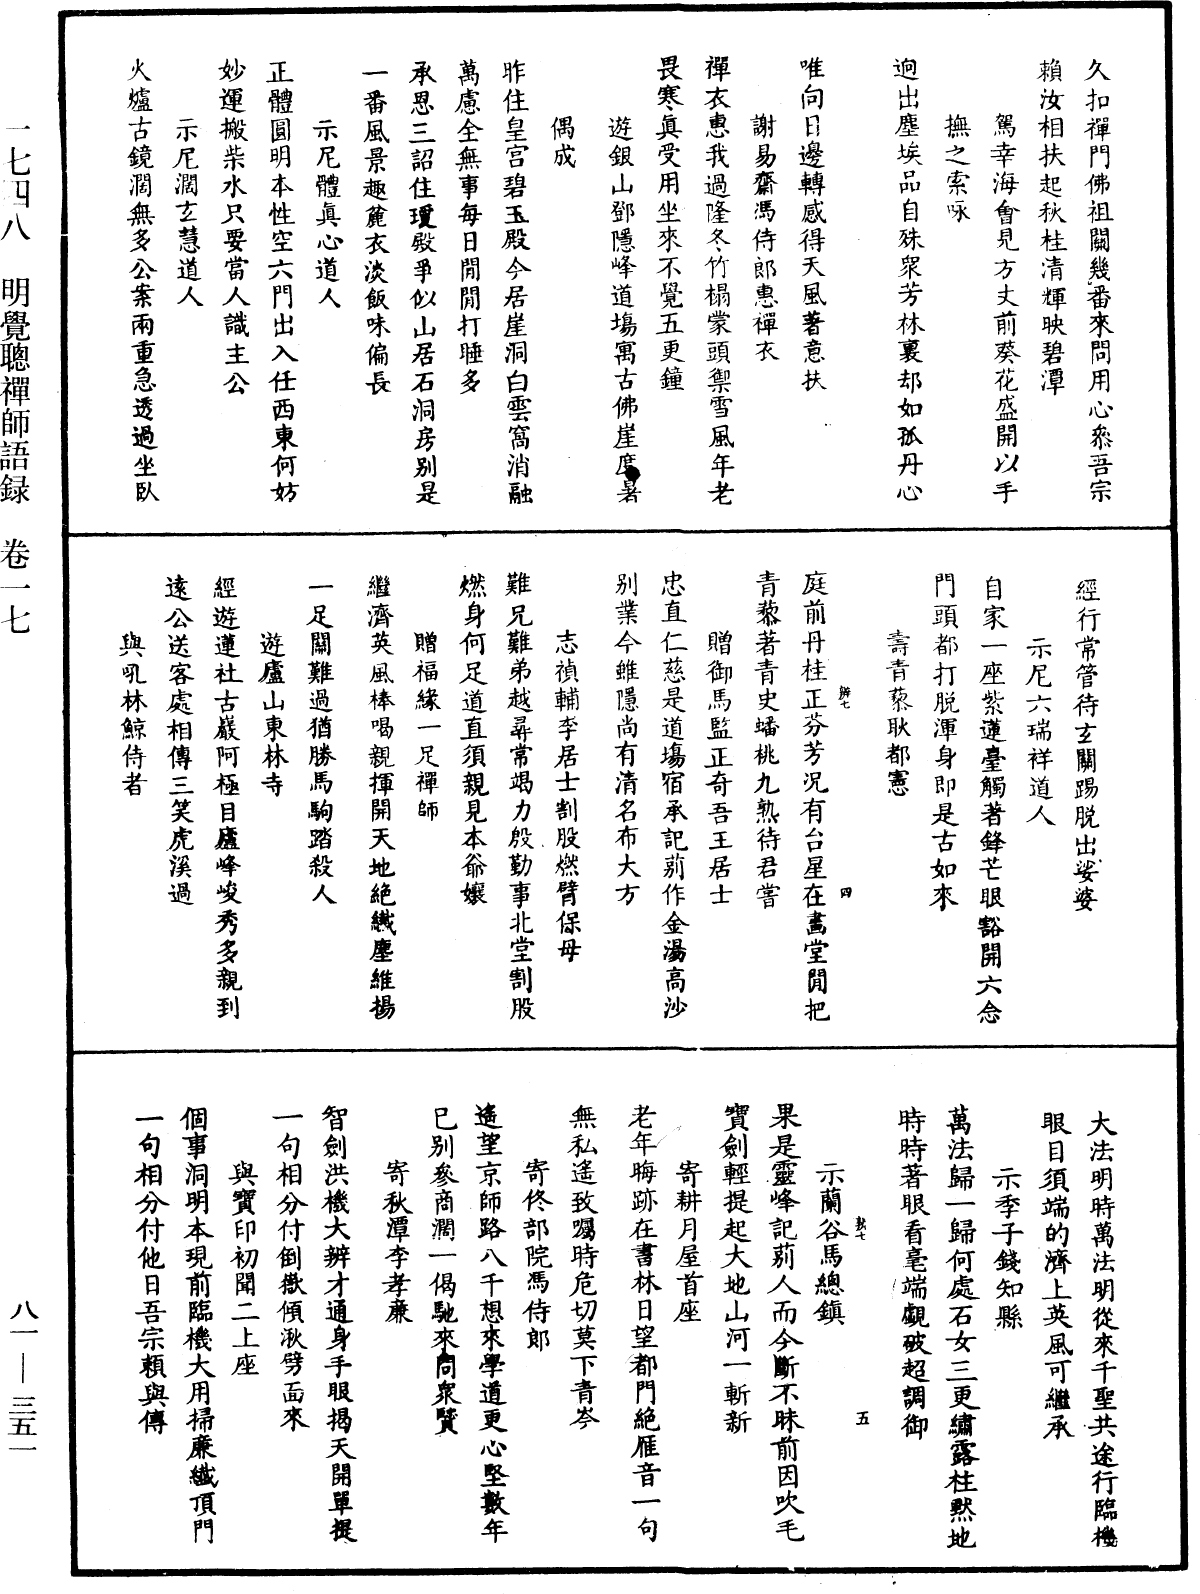 一七四八　明覺聰禪師語録　卷一七
八一—三五一
久扣禪門佛祖關幾番來問用心叅吾宗
賴汝相扶起秋桂清輝映碧潭
駕幸海會見方丈前葵花盛開以手
撫之索咏
逈出塵埃品自殊衆芳林裏却如孤丹心
唯向日邊轉感得天風著意扶
謝易齋馮侍郎惠禪衣
禪衣惠我過隆冬竹榻蒙頭禦雪風年老
畏寒真受用坐來不覺五更鐘
遊銀山鄧隱峰道塲寓古佛崖度暑
偶成
昨住皇宫碧玉殿今居崖洞白雲窩消融
萬慮全無事每日閒閒打睡多
承恩三詔住瓊殿爭似山居石洞房别是
一番風景趣麄衣淡飯味偏長
示尼體真心道人
正體圓明本性空六門出入任西東何妨
妙運搬柴水只要當人識主公
示尼濶玄慧道人
火爐古鏡濶無多公案兩重急透過坐臥
經行常管待玄關踢脱出娑婆
示尼六瑞祥道人
自家一座紫蓮臺觸著鋒芒眼豁開六念
門頭都打脱渾身即是古如來
壽青藜耿都憲
庭前丹桂正芬芳況有台星在畫堂閒把
青藜著青史蟠桃九熟待君嘗
贈御馬監正奇吾王居士
忠直仁慈是道塲宿承記莂作金湯高沙
别業今雖隱尚有清名布大方
志禎輔李居士割股燃臂保母
難兄難弟越尋常竭力殷勤事北堂割股
燃身何足道直須親見本爺孃
贈福緣一足禪師
繼濟英風棒喝親揮開天地絶纖塵維揚
一足關難過猶勝馬駒踏殺人
遊廬山東林寺
經遊蓮社古巖阿極目廬峰峻秀多親到
遠公送客處相傳三笑虎溪過
與吼林鯨侍者
大法明時萬法明從來千聖共途行臨機
眼目須端的濟上英風可繼承
示季子錢知縣
萬法歸一歸何處石女三更繡露柱㸃地
時時著眼看毫端覷破超調御
示蘭谷馬總鎮
果是靈峰記莂人而今斷不昧前因吹毛
寶劍輕提起大地山河一斬新
寄耕月屋首座
老年晦跡在書林日望都門絶雁音一句
無私遙致囑時危切莫下青岑
寄佟部院馮侍郎
遙望京師路八千想來學道更心堅數年
已别參商濶一偈馳來問衆賢
寄秋潭李孝廉
智劍洪機大辨才通身手眼揭天開單提
一句相分付倒嶽傾湫劈面來
與寶印初聞二上座
個事洞明本現前臨機大用掃廉纖頂門
一句相分付他日吾宗賴與傳